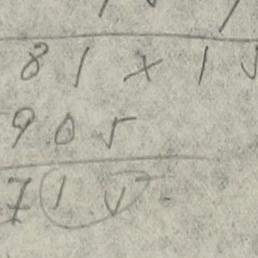 81 × 15
905
715